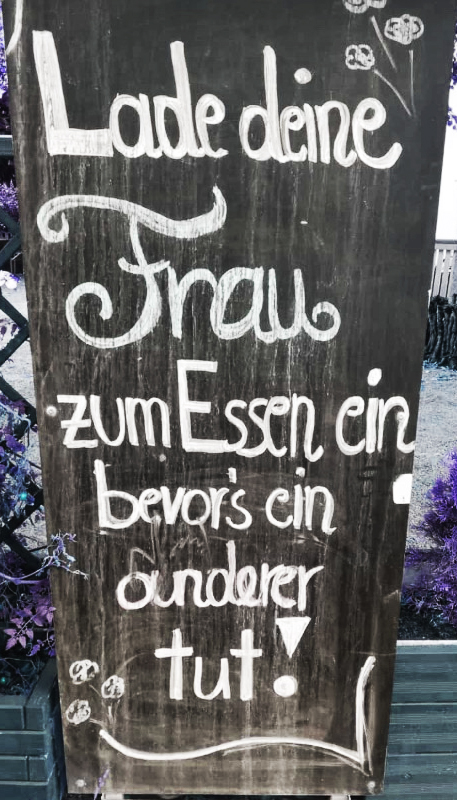 Lade deine
Frau
zum Essen ein
bevor's ein
anderer
tut!